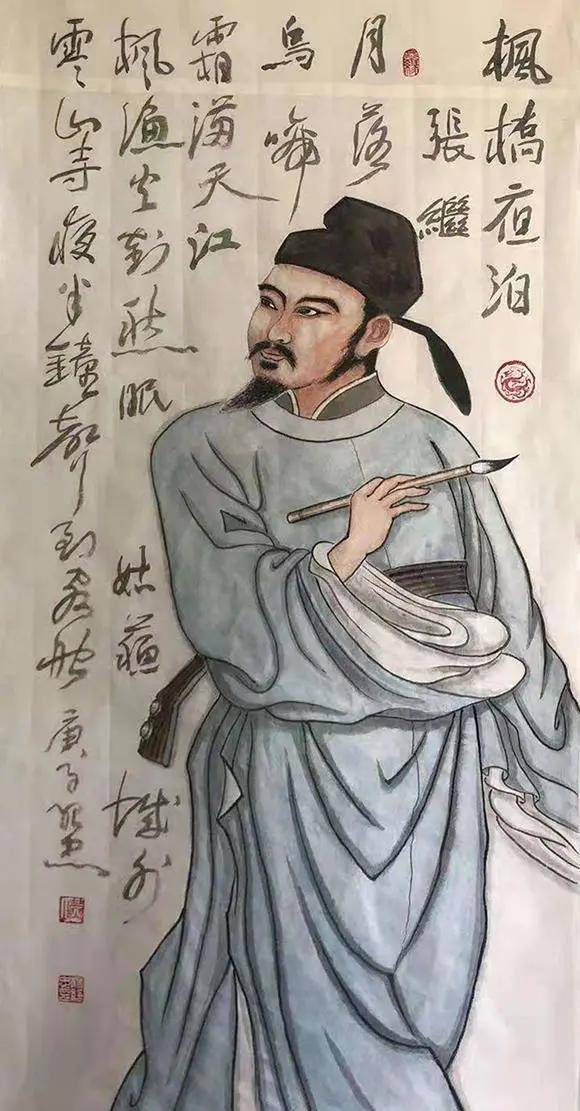 楓橋夜泊
張繼
月落
烏啼
霜滿天江
楓漁火對愁眠姑蘇城外
寒山寺夜半鐘聲到客船 庚子